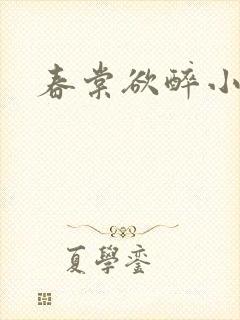 春棠欲醉小
夏學銮